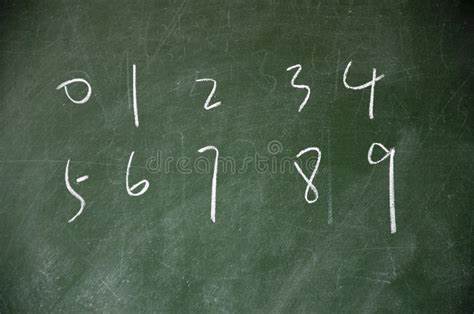 0 1 2 3 4
5 6 7 8 9
dreamstime